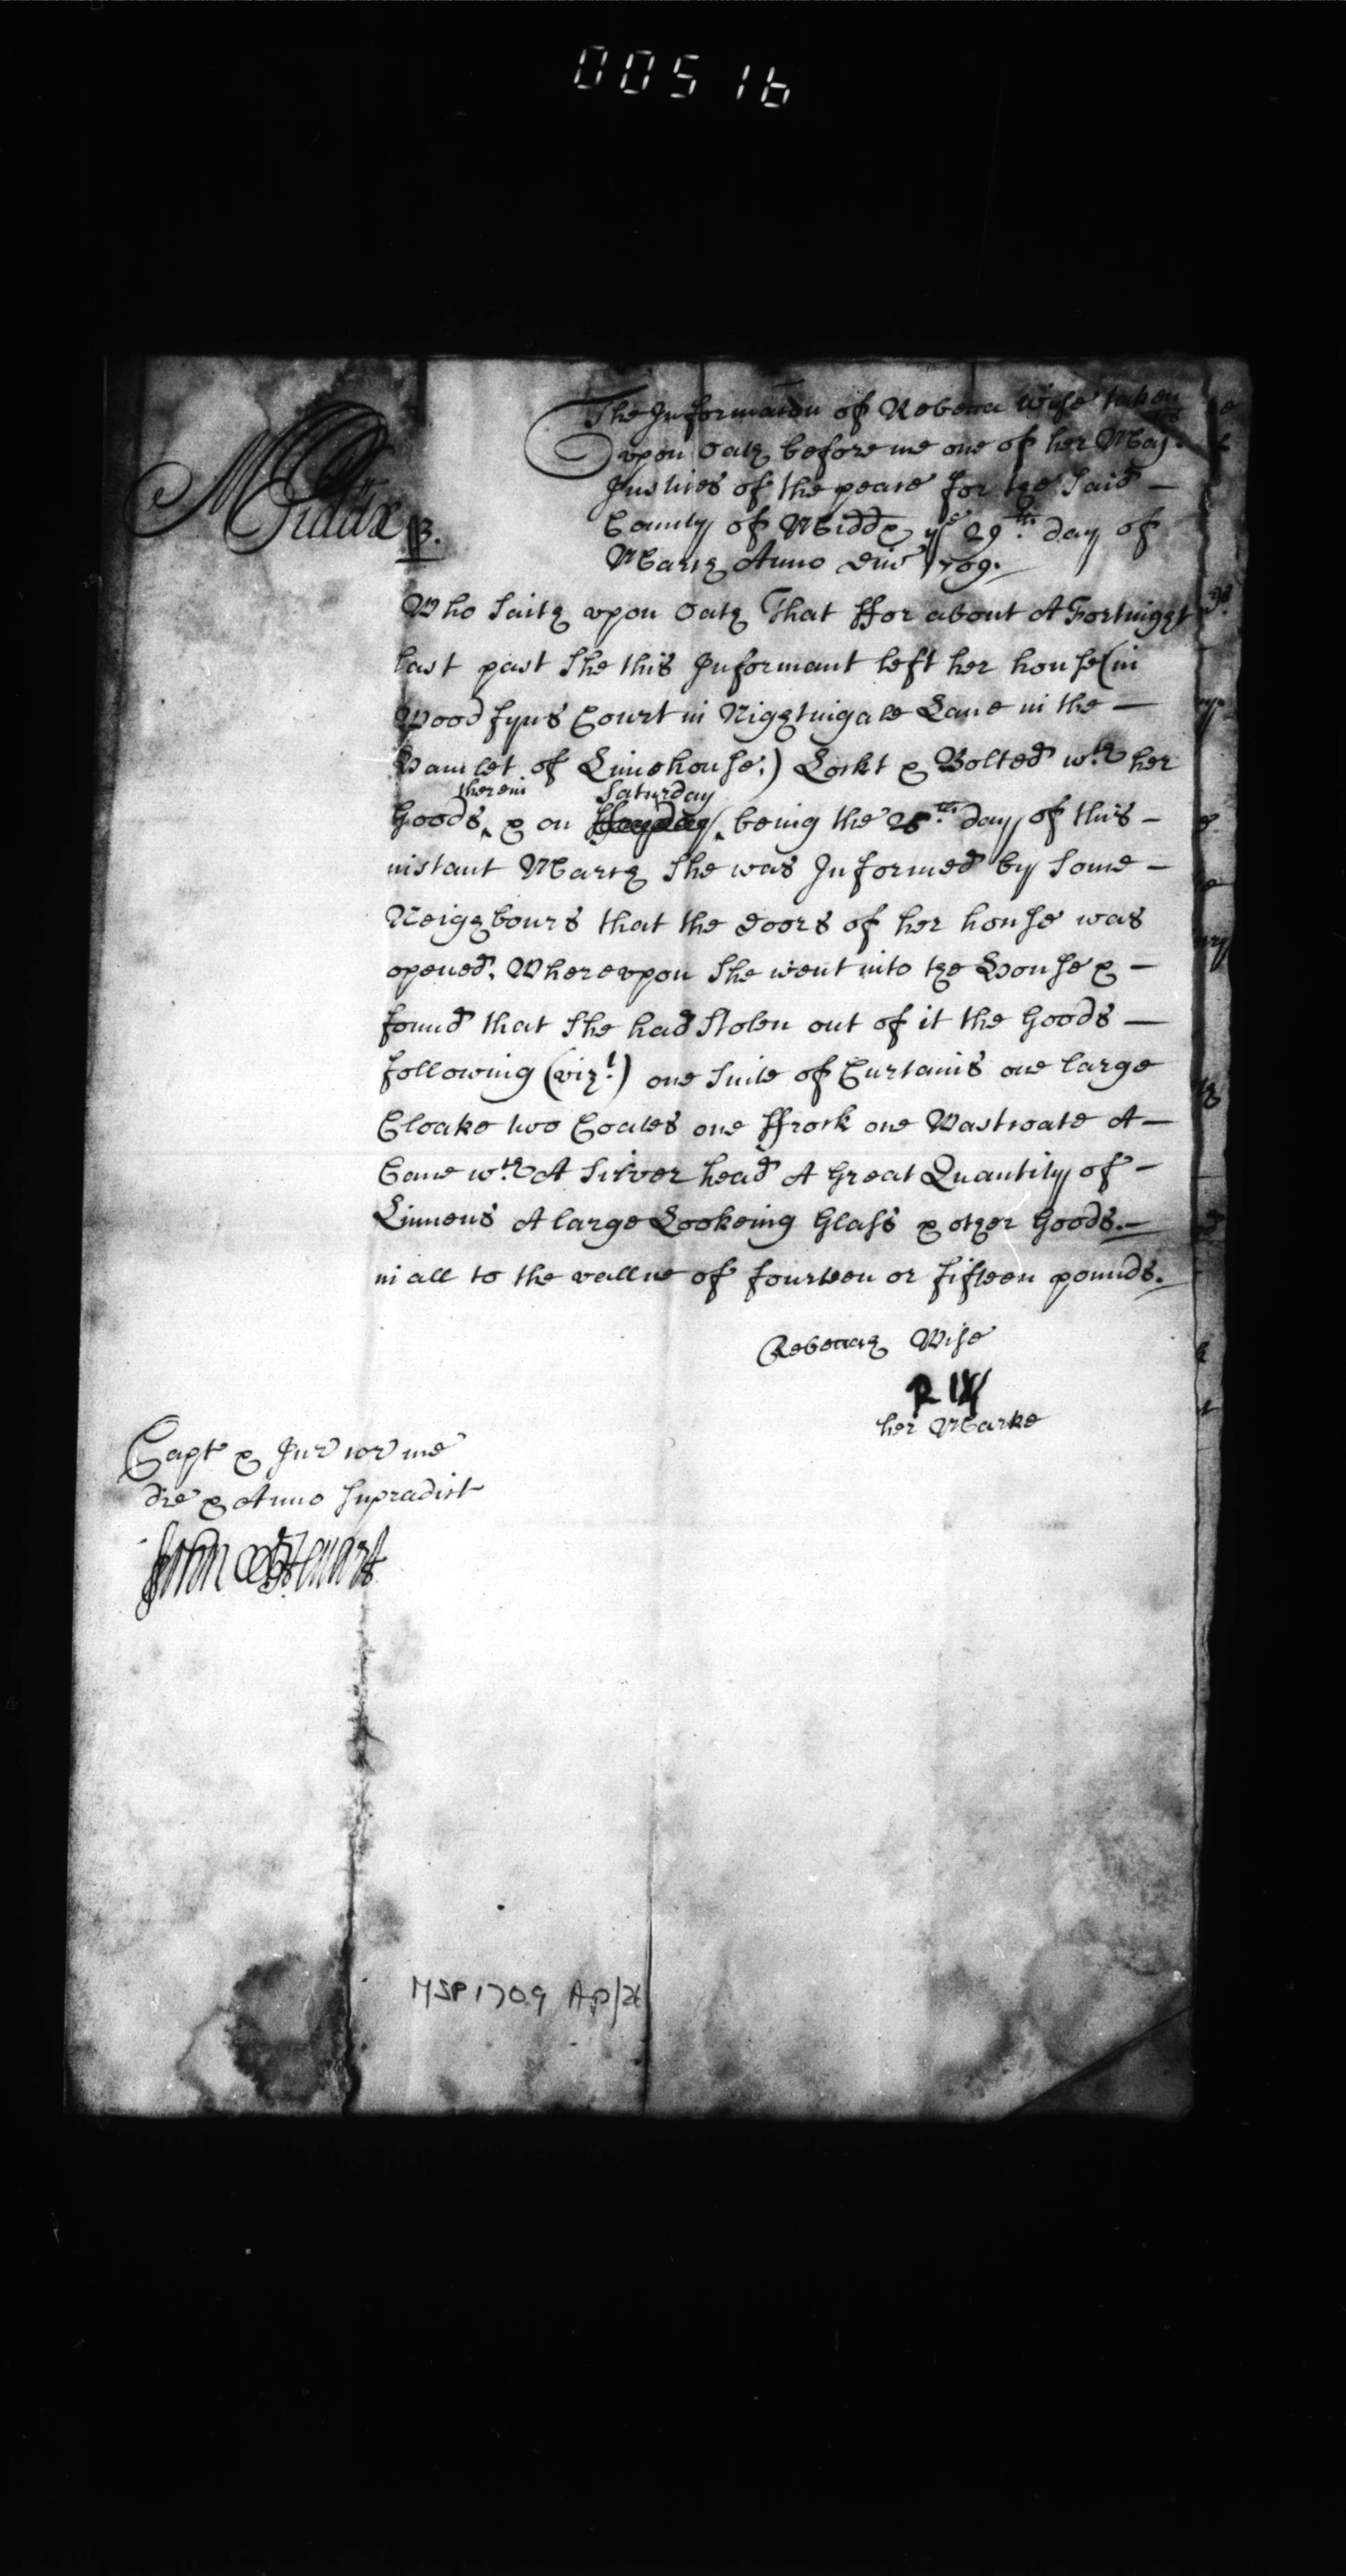 00516
Middx ss.
The Informacon of Rebecca Wise taken
vpon Oath before me one of her Maj.ties
Justices of the peace for the said —
County of Middx ye 29th. day of
March Anno Dni 1709.
Who Saith vpon Oath That ffor about A Fortnight
last past She this Informant left her house (in
Court in Nightingale Lane in the —
Hamlet of Limehouse.) Lockt & Bolted wth. her
therein Saturday
Goods, & on being the 26th. day of this —
instant March She was Informed by Some —
Neighbours that the doors of her house was
opened. Wherevpon She went into the House & —
found that She had Stolen out of it the Goods —
following (vizt.) one Suite of Curtains one large
Cloake two Coates one ffrock one Wastcoate A —
Cane wth. A Silver head A Great Quantity of —
Linnens A large Lookeing Glass & other Goods. —
in all to the vallue of fourteen or fifteen pounds.
Rebeccah Wise
R W
her Marke
Capt & Jur cor me
die & Anno supradict
John Stewart
MSP 1709 Ap/26